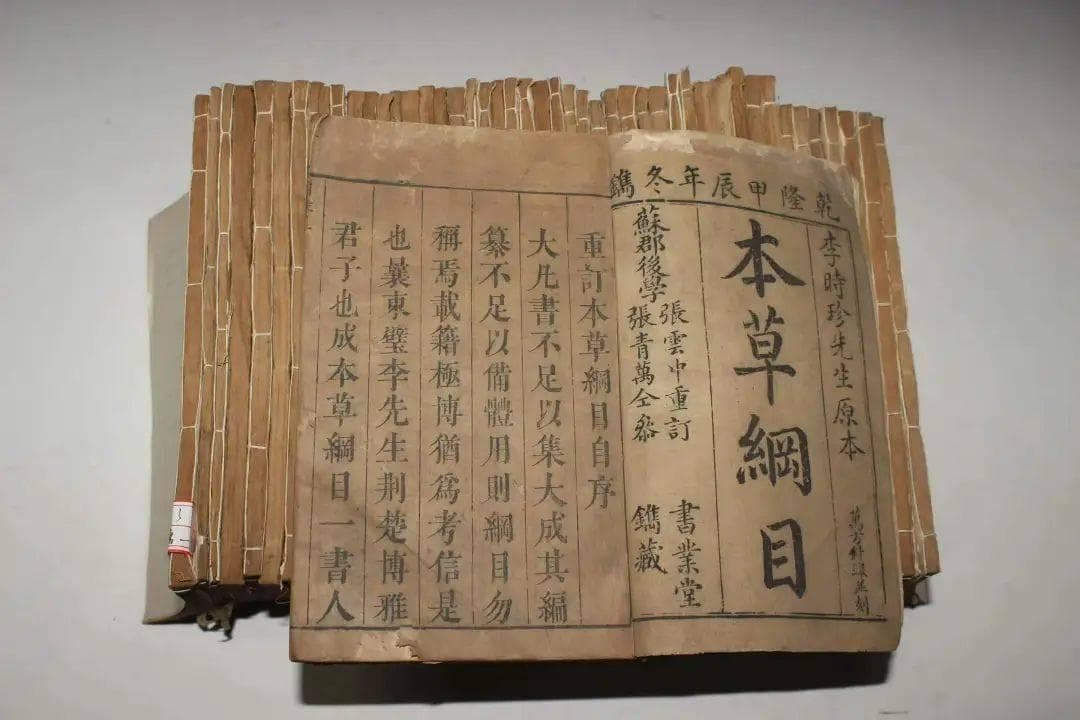 乾隆甲辰年冬鐫
李時珍先生原本
本草綱目
蘇郡後學
張雲中重訂
張青萬仝叅
書業堂
鐫藏
重訂本草綱目自序
大凡書不足以集大成其編
纂不足以備體用則綱目勿
稱焉載籍極博猶爲考信是
也曩東璧李先生荆楚博雅
君子也成本草綱目一書人
3